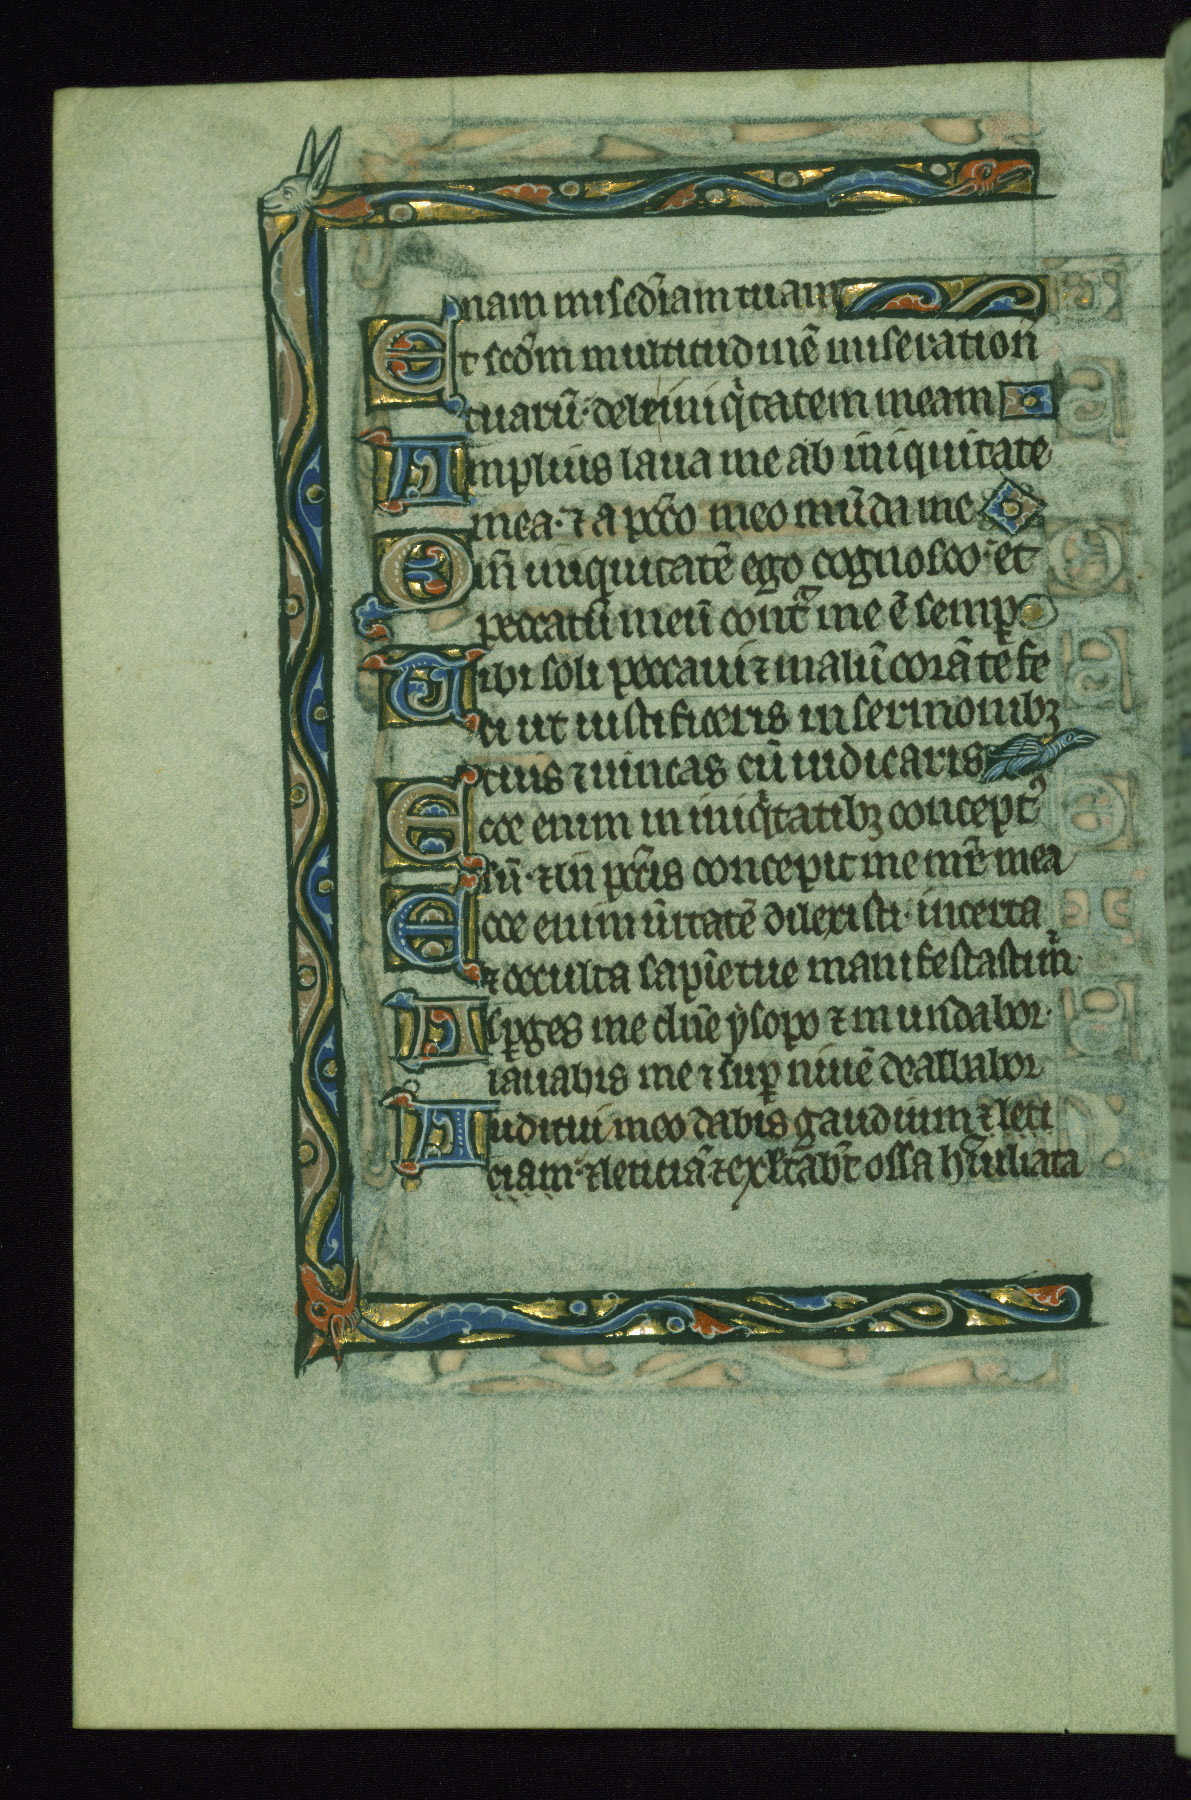 nam miſeďiam tuam
Et ſcďm multitudinē miſeration̄
tuarū· dele iniq̇tatem meam
Amplius laua me ab iniquitate
mea· ⁊ a pcc̄o meo mūda me
Qm̄ iniquitatē ego cognoſco· et
peccatū meū contᷓ me ē ſemp̱
Tibi ſoli peccaui ⁊ malū corā te fe
ci ut iuſtificeris in ſermonibꝫ
tuis ⁊ uincas cū iudicaris
Ecce enim in iniq̇tatibꝫ concept᷒
ſū· ⁊ in pcc̄is concepit me mr̄ mea
Ecce enim ūitatē dilexiſti· incerta
⁊ occulta ſapīe tue manifeſtaſti m̄
Aſꝑges me dn̄e yſopo ⁊ mundabor·
lauabis me ⁊ ſuꝑ niuē dealbabor
Auditui meo dabis gaudium ⁊ leti
ciam· ⁊ leticiā· ⁊ exl̄tabūt oſſa hūiliata